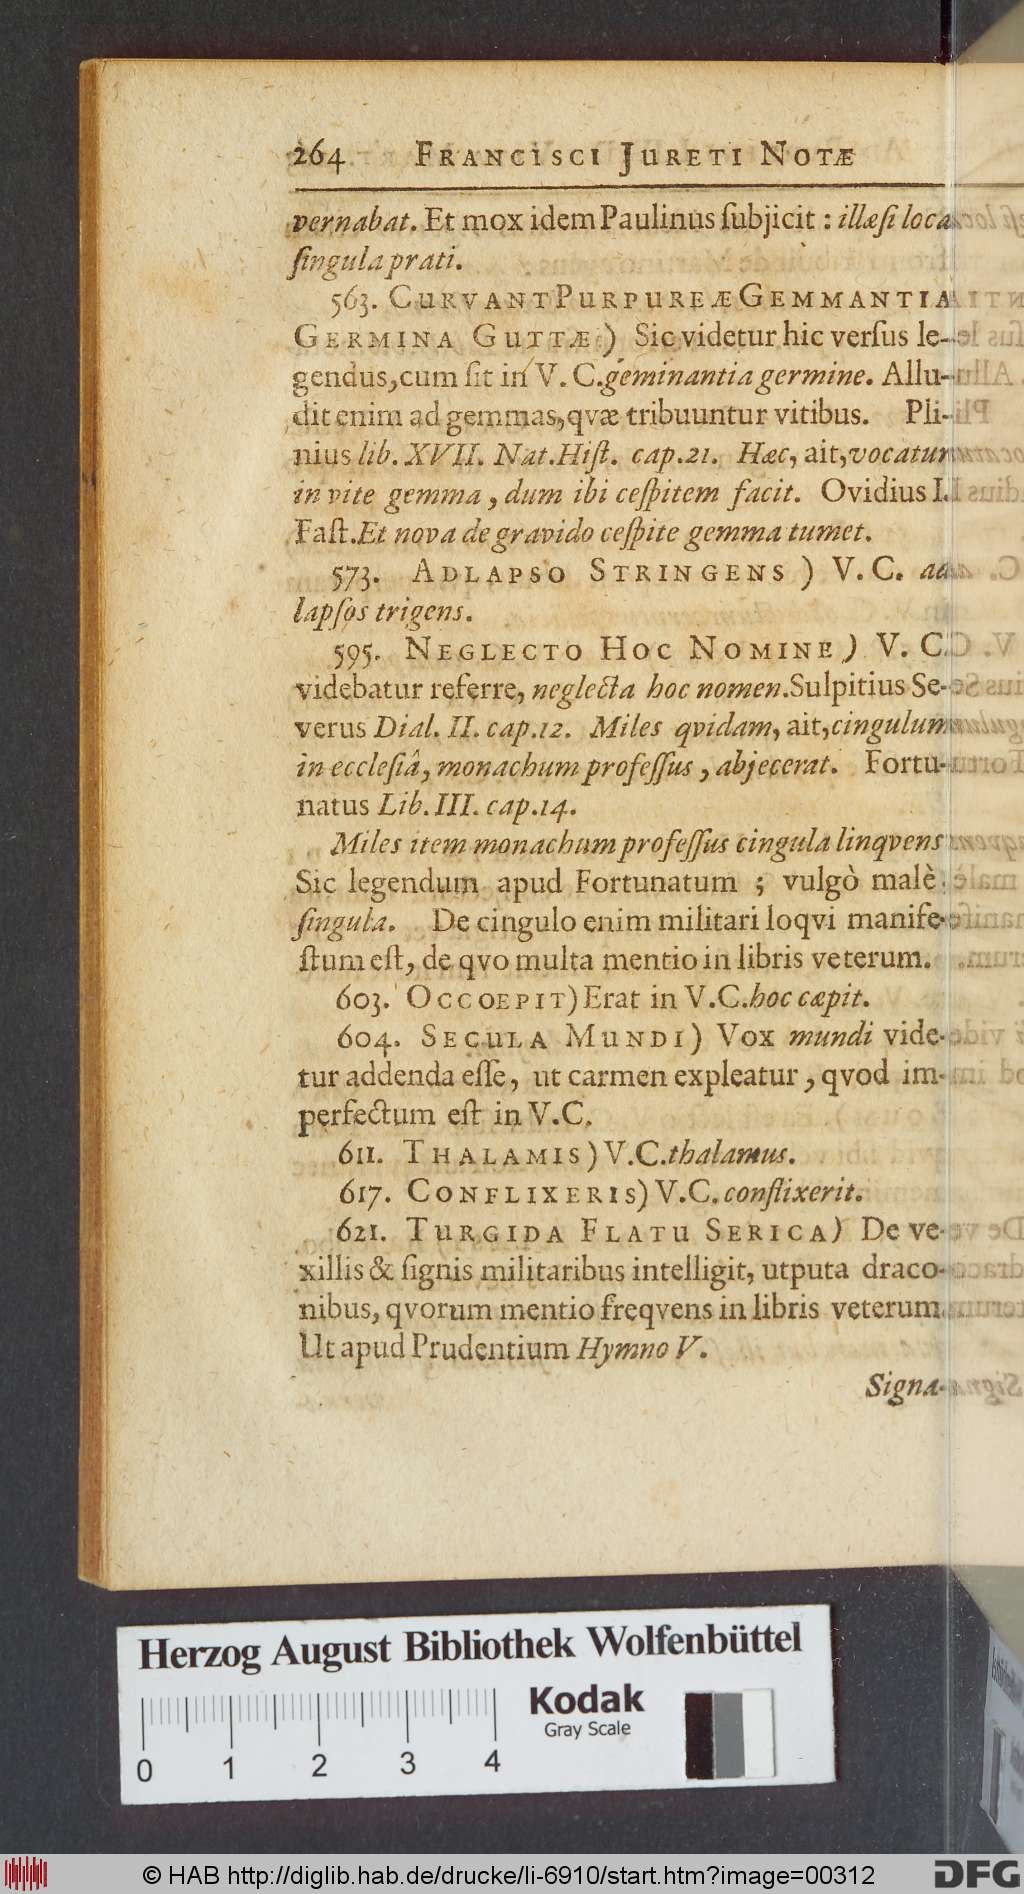 264 FRANCISCI JURETI NOTÆ
vernabat. Et mox idem Paulinus ſubjicit : illæſi loca
ſingula prati.
563. CURVANT PURPUREÆ GEMMANTIA
GERMINA GUTTÆ) Sic videtur hic verſus le-
gendus, cum ſit in V. C. geminantia germine. Allu-
dit enim ad gemmas, qvæ tribuuntur vitibus. Pli-
nius lib. XVII. Nat. Hiſt. cap. 21. Hæc, ait, vocatur
in vite gemma, dum ibi ceſpitem facit. Ovidius I.
Faſt. Et nova de gravido ceſpite gemma tumet.
573. ADLAPSO STRINGENS ) V. C. ad-
lapſos trigens.
595. NEGLECTO HOC NOMINE) V. C.
videbatur referre, neglecta hoc nomen. Sulpitius Se-
verus Dial. II. cap. 12. Miles qvidam, ait, cingulum
in eccleſiâ, monachum profeſſus, abjecerat. Fortu-
natus Lib. III. cap. 14.
Miles item monachum profeſſus cingula linqvens
Sic legendum apud Fortunatum ; vulgò malè
ſingula. De cingulo enim militari loqvi manife-
ſtum eſt, de qvo multa mentio in libris veterum.
603. OCCOEPIT) Erat in V. C. hoc cæpit.
604. SECULA MUNDI) Vox mundi vide-
tur addenda eſſe, ut carmen expleatur, qvod im-
perfectum eſt in V. C.
611. THALAMIS) V. C. thalamus.
617. CONFLIXERIS) V. C. conflixerit.
621. TURGIDA FLATU SERICA) De ve-
xillis & ſignis militaribus intelligit, utputa draco-
nibus, qvorum mentio freqvens in libris veterum.
Ut apud Prudentium Hymno V.
Signa-
Herzog August Bibliothek Wolfenbüttel
Kodak
Gray Scale
0 1 2 3 4
© HAB http://diglib.hab.de/drucke/li-6910/start.htm?image=00312
DFG